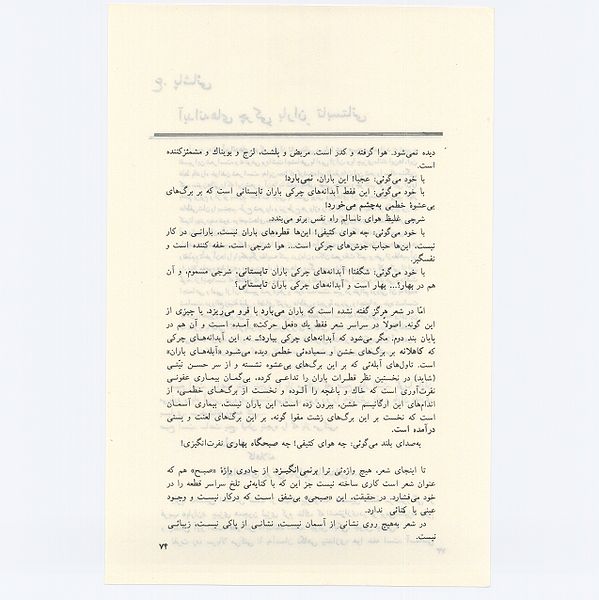 دیده نمی‌شود. هوا گرفته و کدر است. مریض و پلشت، لزج و بویناك و مشمئزکننده
است.
با خود می‌گوئی: عجبا! این باران، نمی‌بارد!
با خود می‌گوئی: این فقط آبدانه‌های چرکی باران تابستانی است که بر برگ‌های
بی‌عشوۀ خطمی به‌چشم می‌خورد!
شرجی غلیظ هوای ناسالم راه نفس برتو می‌بندد.
با خود می‌گوئی: چه هوای کثیفی! این‌ها قطره‌های باران نیست، بارانی در کار
نیست. این‌ها حباب جوش‌های چرکی است... هوا شرجی است، خفه کننده است و
نفسگیر.
با خود می‌گوئی: شگفتا! آبدانه‌های چرکی باران تابستانی، شرجی مسموم، و آن
هم در بهار؟... بهار است و آبدانه‌های چرکی باران تابستانی؟
امّا در شعر هرگز گفته نشده است که باران می‌بارد یا فرو می‌ریزد. یا چیزی از
این گونه. اصولاً در سراسر شعر فقط یك «فعل حرکت» آمده است و آن هم در
پایان بند دوم. مگر می‌شود که آبدانه‌های چرکی ببارد؟ـ نه. این آبدانه‌های چرکی
که کاهلانه بر برگ‌های خشن و سمباده‌ئی خطمی دیده می‌شود «آبله‌های باران»
است. تاول‌های آبله‌ئی که بر این برگ‌های بی‌عشوه نشسته و از سر حسن نیّتی
(شاید) در نخستین نظر قطرات باران را تداعی کرده، بی‌گمان بیماری عفونی
نفرت‌آوری است که خاك و باغچه را آلوده و نخست از برگ‌های خطمی، از
اندام‌های این ارگانیسم خشن، بیرون زده است. این باران نیست. بیماری آسمان
است که نخست بر این برگ‌های زشت مقوا گونه، بر این برگ‌های لعنت و پستی
درآمده است.
به‌صدای بلند می‌گوئی: چه هوای کثیفی! چه صبحگاه بهاری نفرت‌انگیزی!
تا اینجای شعر، هیچ واژه‌ئی ترا برنمی‌انگیزد. از جادوی واژۀ «صبح» هم که
عنوان شعر است کاری ساخته نیست جز این که با کنایه‌ئی تلخ سراسر قطعه را در
خود می‌فشارد. در حقیقت، این «صبحی» بی‌شفق است که درکار نیست و وجود
عینی یا کتابی ندارد.
در شعر به‌هیچ روی نشانی از آسمان نیست، نشانی از پاکی نیست، زیبائی
نیست.
۴۷